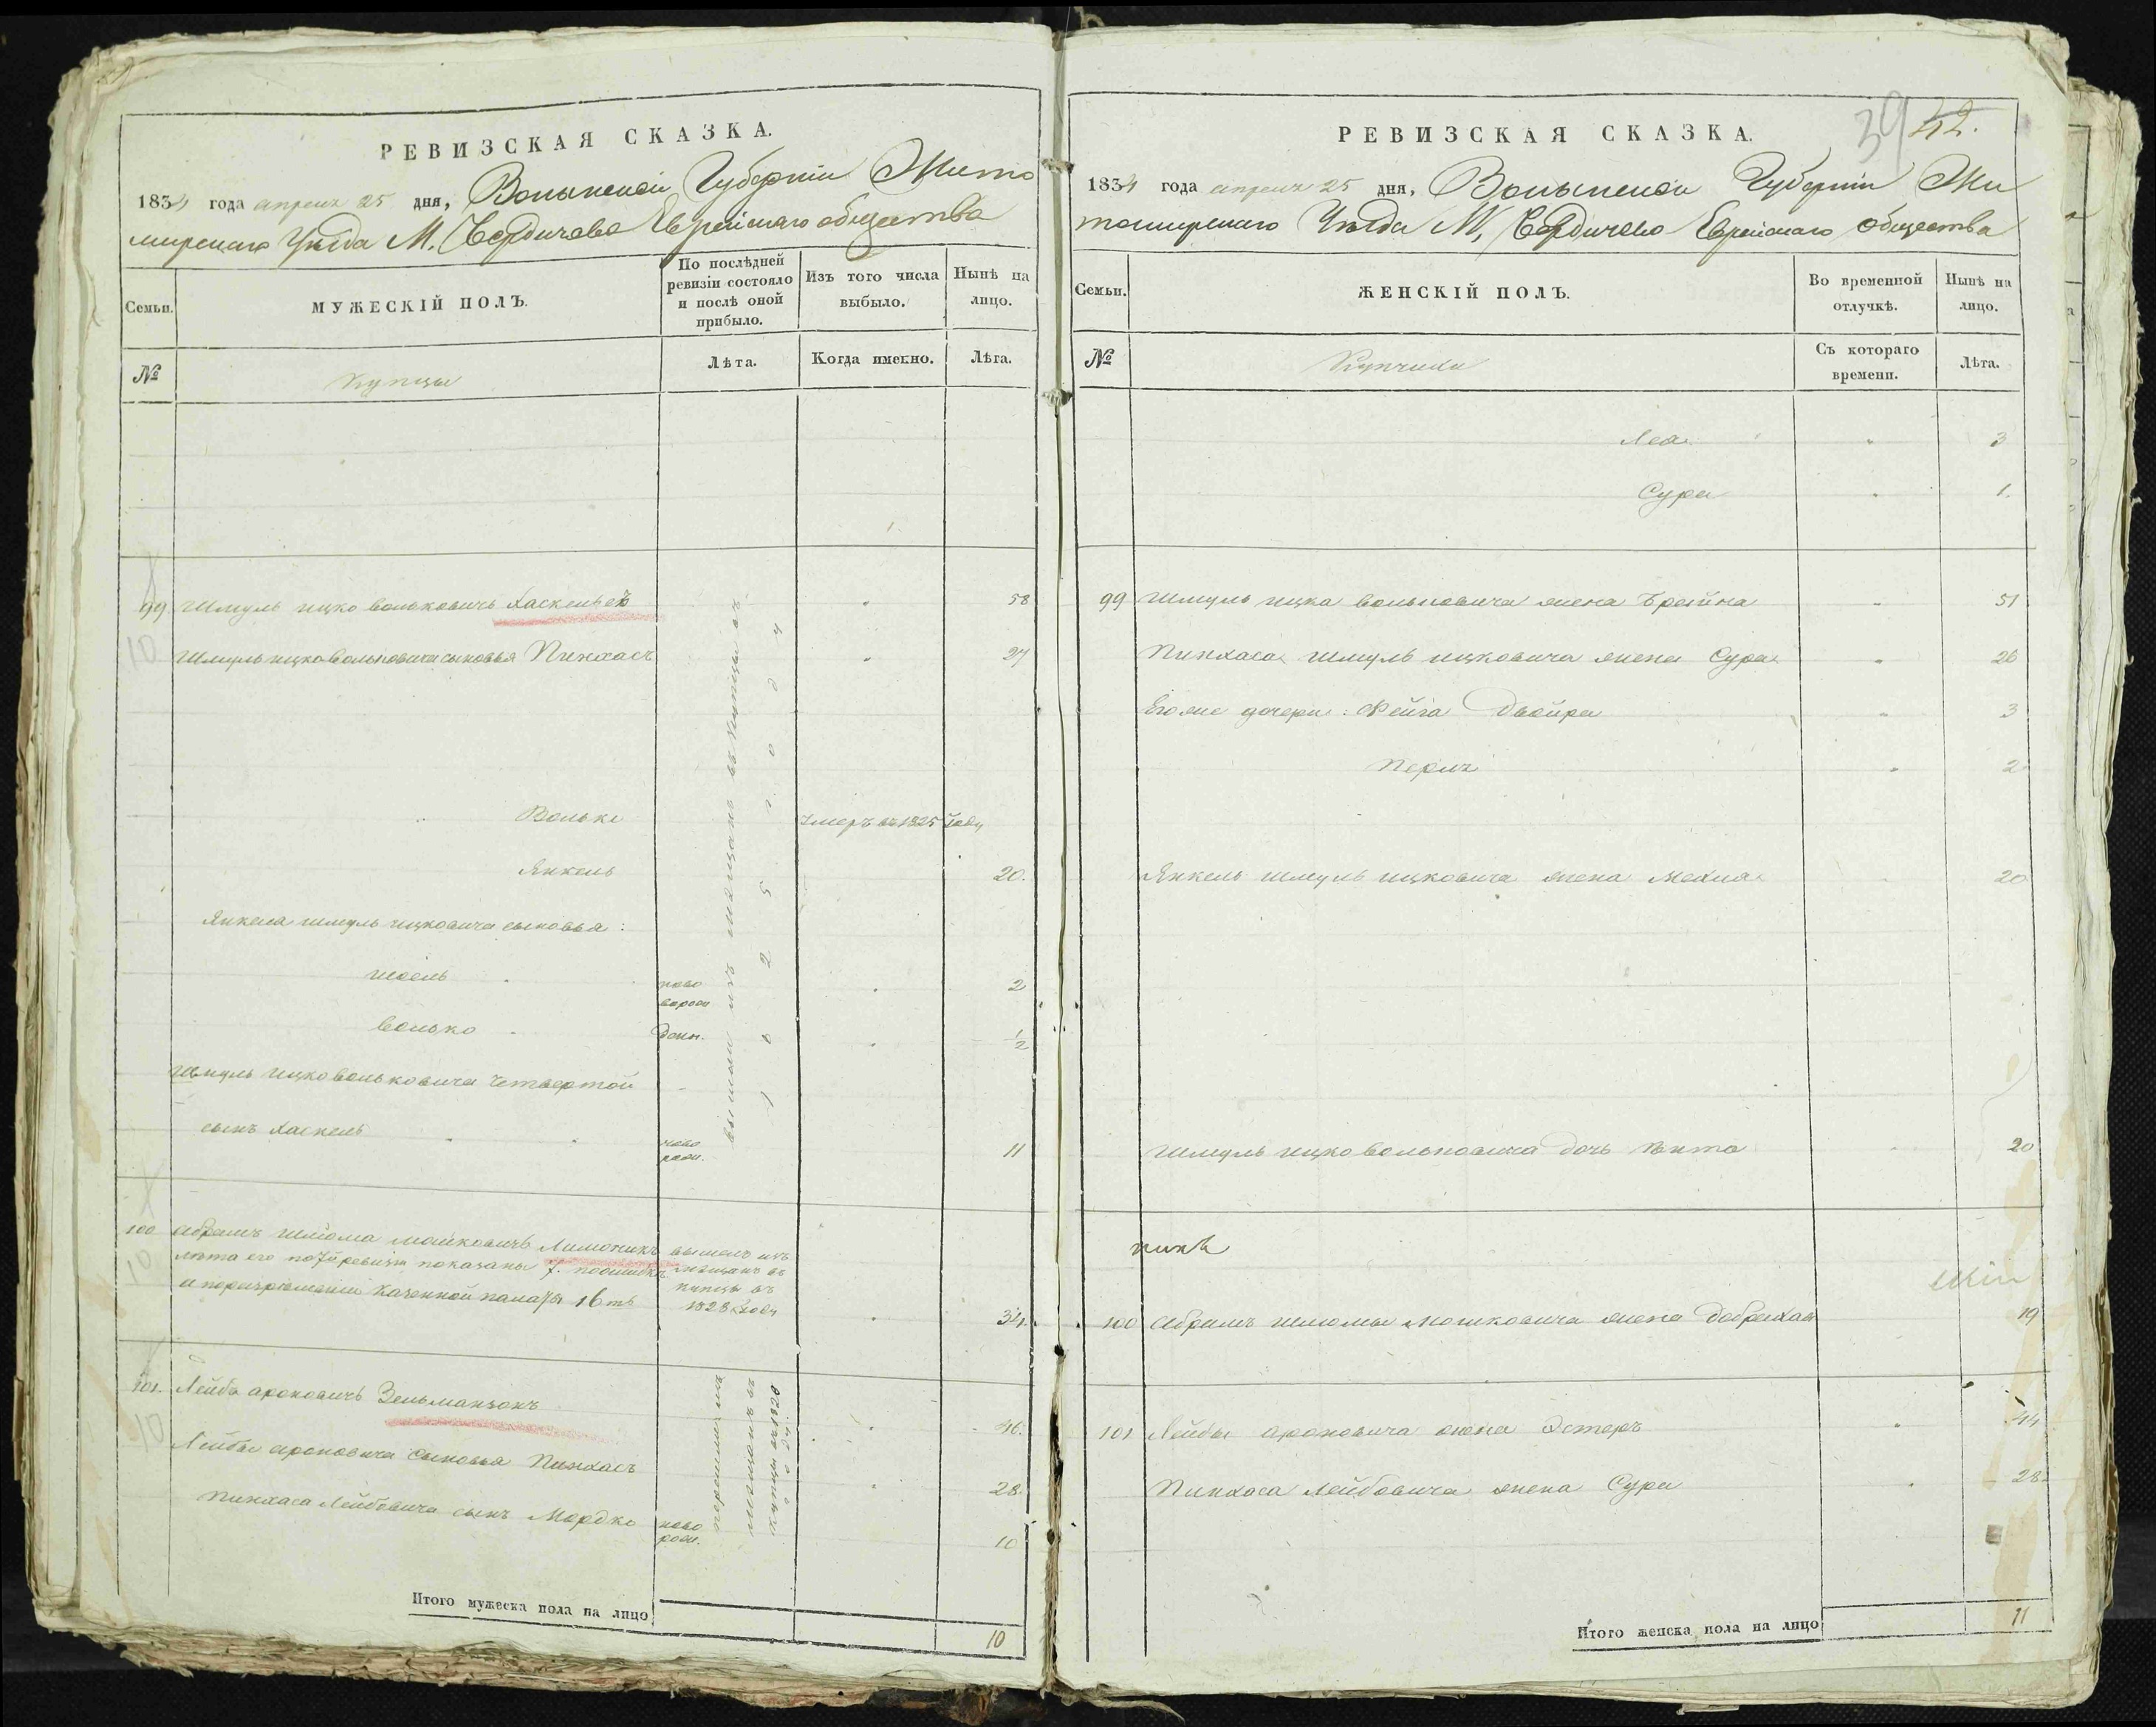 РЕВИЗСКАЯ СКАЗКА.
1834 года апреля 25 дня, Волынской Губернии Жито
мирскаго Уезда М. Бердичева Еврейскаго общества
Семьи.
МУЖЕСКІЙ ПОЛЪ.
По послѣдней ревизіи состояло и послѣ оной прибыло.
Изъ того числа выбыло.
Нынѣ на лицо.
№
Купцы
Лѣта.
Когда именно.
Лѣта.
99 Шмуль ицко вольковичъ Хаскельсъ 58
10
Шмульицко Вольковича сыновья Пинхасъ 27
Волько умеръ въ 1825 году
Янкель 20.
Янкеля шмуль ицковича сыновья:
ново
ворож
2
волько
денн.
1/2
Шмуль ицко вольковича четвертой
сынъ Хаскель
ново
рож.
11
вышли изъ мещанъ въ купцы въ
1825 года
100 Абрамъ шлiома мошковичъ
лѣта его по 7й ревизiи показаны 7.
казенной палаты 16ть
10
вышелъ изъ
мещанъ въ
купцы въ
1828 году
34.
101. Лейба ароновичъ Зельманзонъ 46.
10
Лейбы ароновича сыновья Пинхасъ 28.
Пинхаса Лейбовича сынъ Мордко
ново
рож.
10
перешли изъ
мещанъ въ
купцы въ 1828
году
Итого мужеска пола на лицо
10
РЕВИЗСКАЯ СКАЗКА.
39 42.
1834 года апреля 25 дня, Волынской Губернии Жи
томирскаго Уезда М. Бердичева Еврейскаго общества
Семьи.
ЖЕНСКІЙ ПОЛЪ.
Во временной отлучкѣ.
Нынѣ на лицо.
№
Купчихи
Съ котораго времени.
Лѣта.
Леа 3
Сура 1.
99 Шмуль ицка вольковича жена Брейна 51
Пинхаса шмуль ицковича жена Сура 26
Его же дочери: Фейга Двойра 3
Перль 2
Янкель шмуль ицковича жена 20
Шмуль ицко вольковича дочь 20
100 Абрамъ шлiомы мошковича жена 19
101 Лейбы ароновича жена Эстеръ 44
Пинхаса лейбовича жена Сура 28.
Итого женска пола на лицо
11